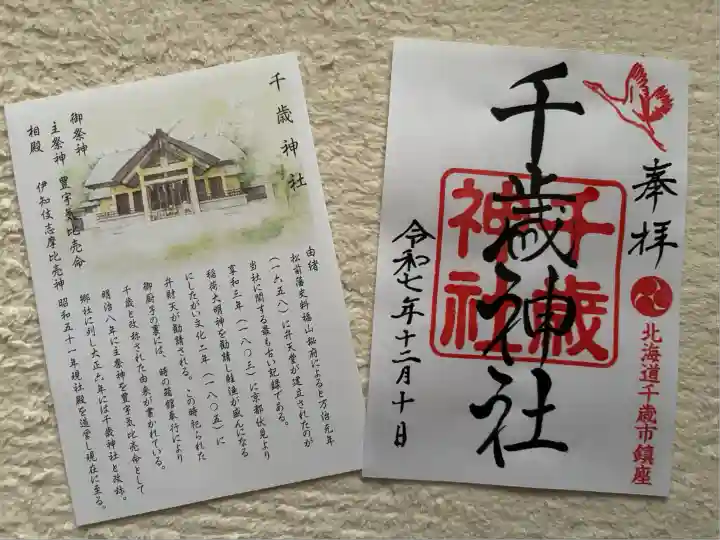 千歳神社
御祭神
主祭神 豊宇気比売命
相殿 伊知伎志摩比売神
由緒
松前藩史料福山秘府によると万治元年
(一六五八)に弁天堂が建立されたのが
当社に関する最も古い記録である。
享和三年(一八〇三)に京都伏見より
稲荷大明神を勧請し鮭漁が盛んになる
にしたがい文化二年(一八〇五)に
弁財天が勧請される。この時祀られた
御厨子の裏には、時の箱館奉行により
千歳と改称された由来が書かれている。
明治八年に主祭神を豊宇気比売命として
郷社に列し大正六年には千歳神社と改称。
昭和五十一年現社殿を造営し現在に至る。
奉拝
北海道千歳市鎮座
千歳神社
千歳
神社
令和七年十二月十日